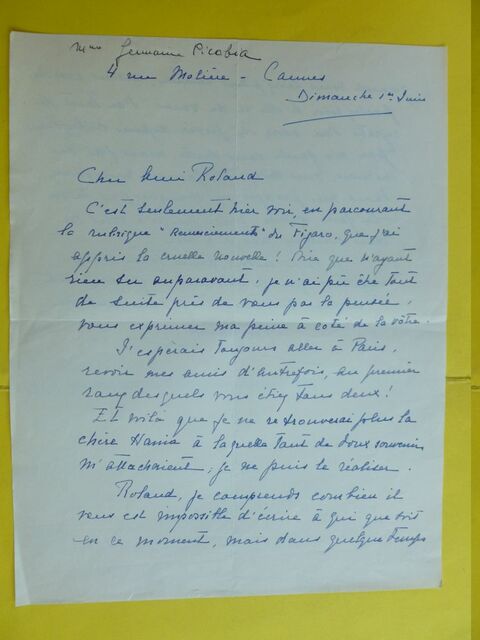 Mme Germaine Picabia
4 rue Molière - Cannes
Dimanche 1er Juin
Cher Ami Roland
C'est seulement hier soir, en parcourant
la rubrique "Remerciements" du Figaro, que j'ai
appris la cruelle nouvelle! Dire que n'ayant
rien su auparavant, je n'ai pu être tout
de suite près de vous par la pensée,
vous exprimer ma peine à côté de la vôtre.
J'espérais toujours aller à Paris,
revoir mes amis d'autrefois, au premier
rang desquels vous étiez tous deux!
Et voilà que je ne retrouverai plus la
chère Hania à laquelle tant de doux souvenirs
m'attachaient; je ne puis le réaliser.
Roland, je comprends combien il
vous est impossible d'écrire à qui que soit
en ce moment, mais dans quelque temps